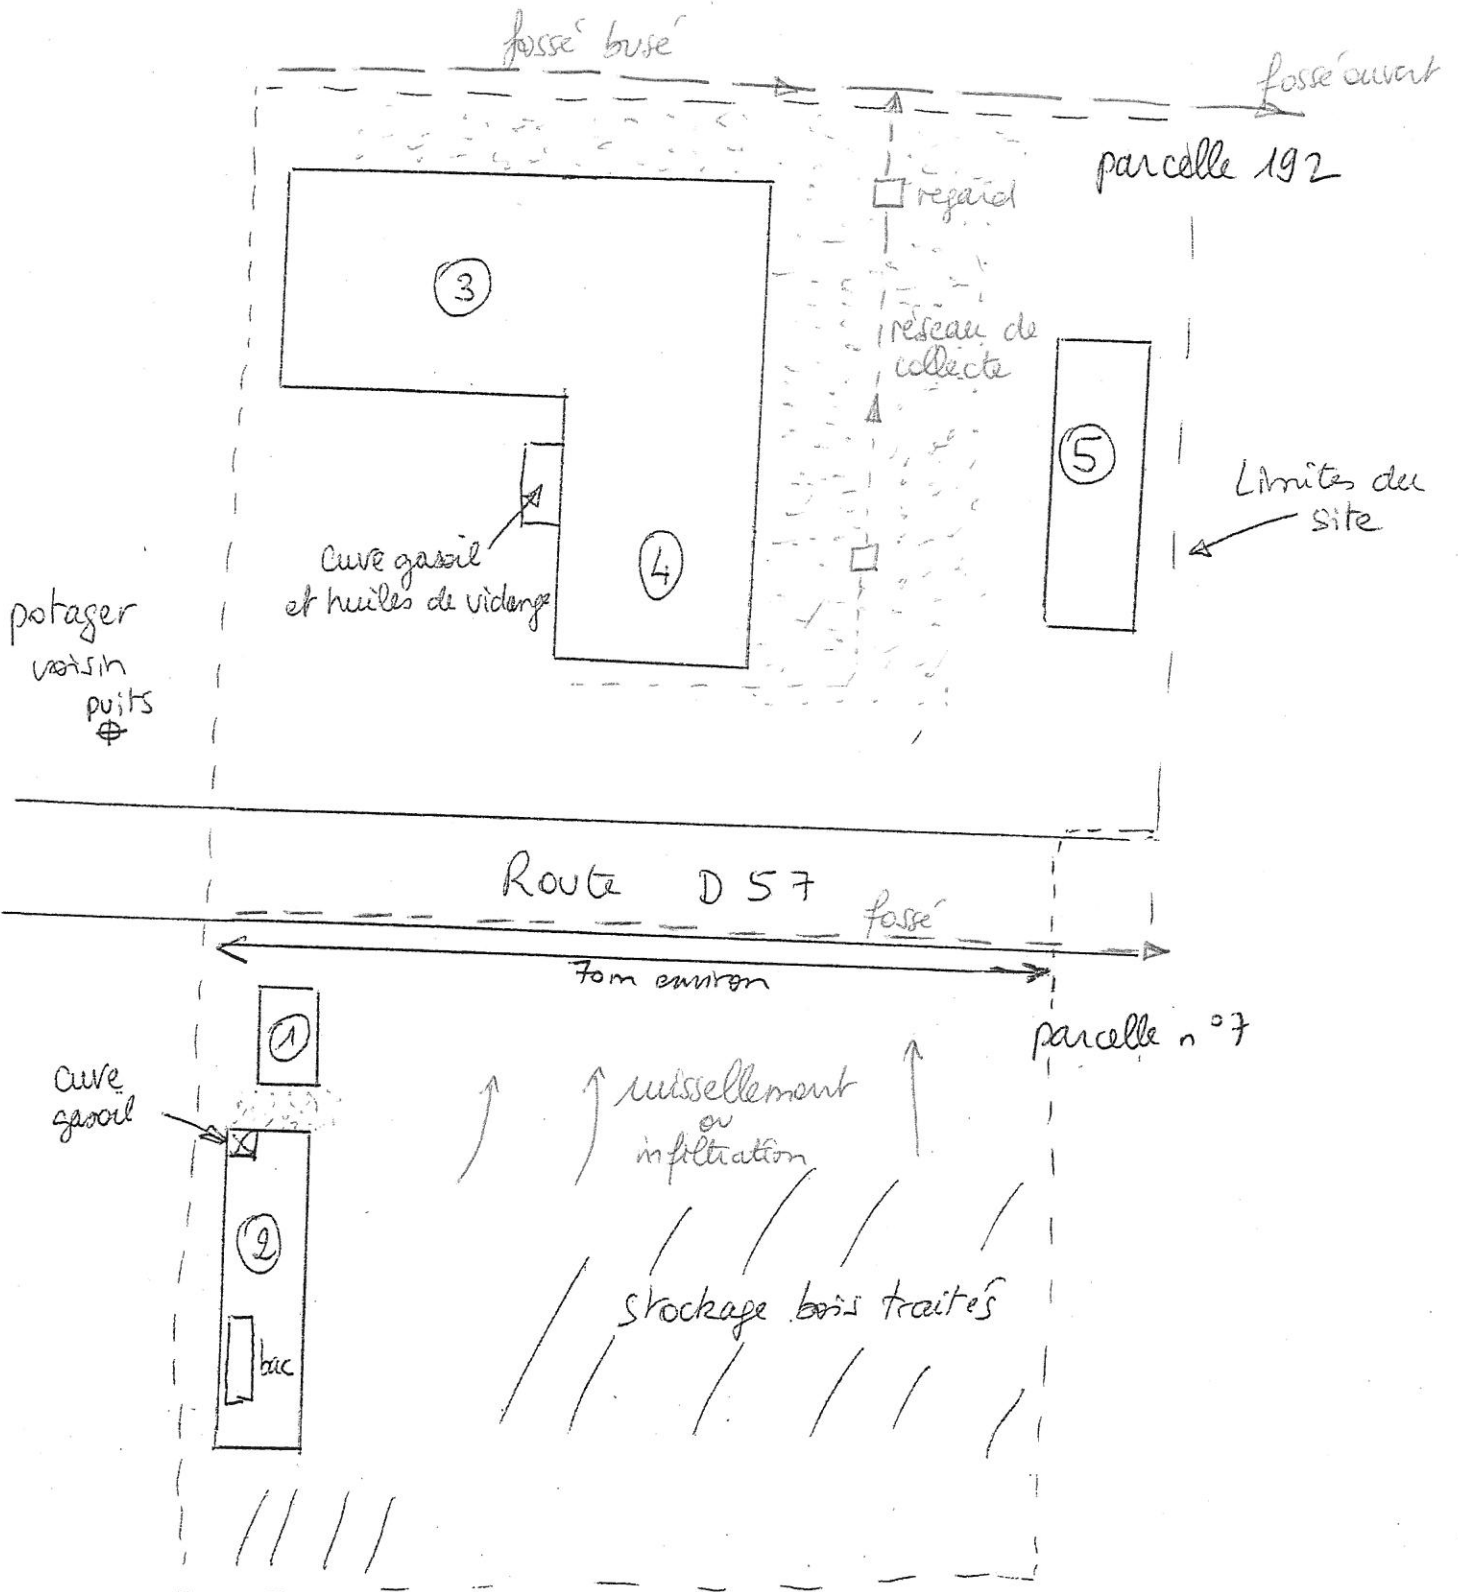 fossé busé
fossé ouvert
parcelle 192
regard
3
réseau de
collecte
5
Limites du
site
cuve gasoil
et huiles de vidange
4
potager
voisin
puits
Route D 57
fossé
70m environ
1
parcelle n°7
cuve
gasoil
ruissellement
ou
infiltration
2
stockage bois traités
bac